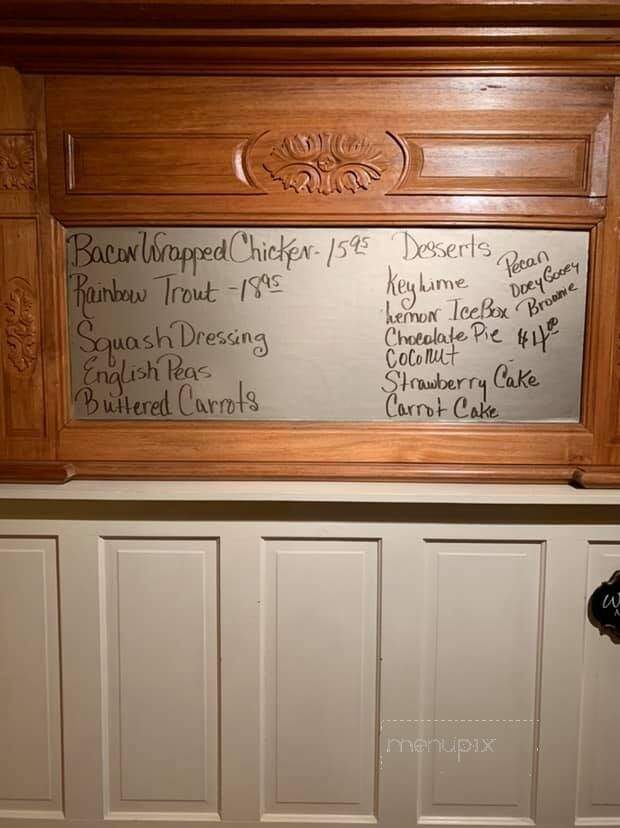 Bacon Wrapped Chicken - 15.95
Rainbow Trout - 18.95
Squash Dressing
English Peas
Buttered Carrots
Desserts
Key Lime
Lemon Ice Box
Chocolate Pie
Coconut
Strawberry Cake
Carrot Cake
Pecan
Ooey Gooey
Brownie
$4.00
menupix